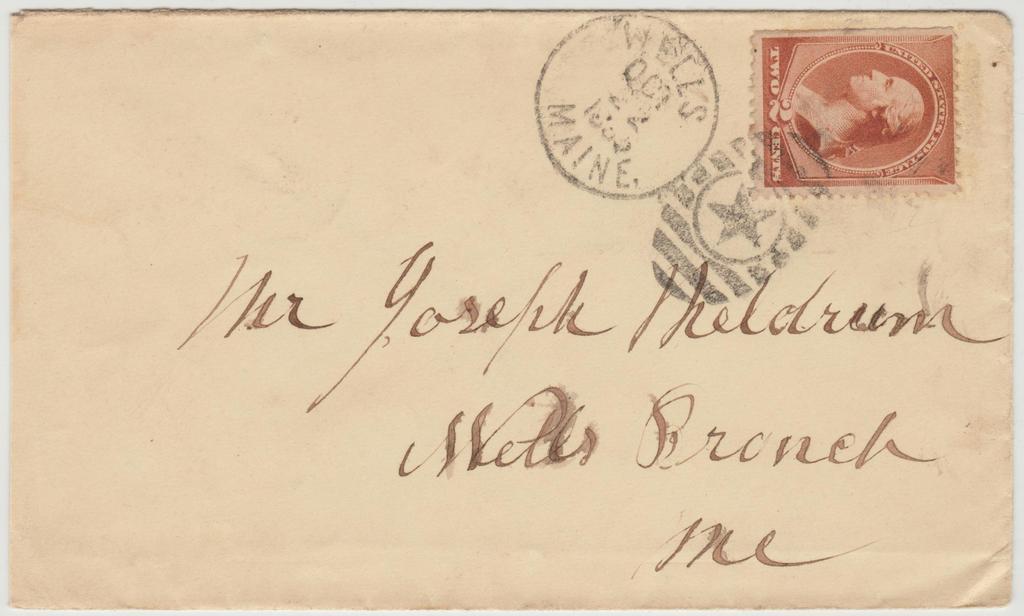 WELLS
MAINE.
UNITED STATES POSTAGE
TWO 2 CENTS
Mr Joseph Meldrum
Wells Branch
Me